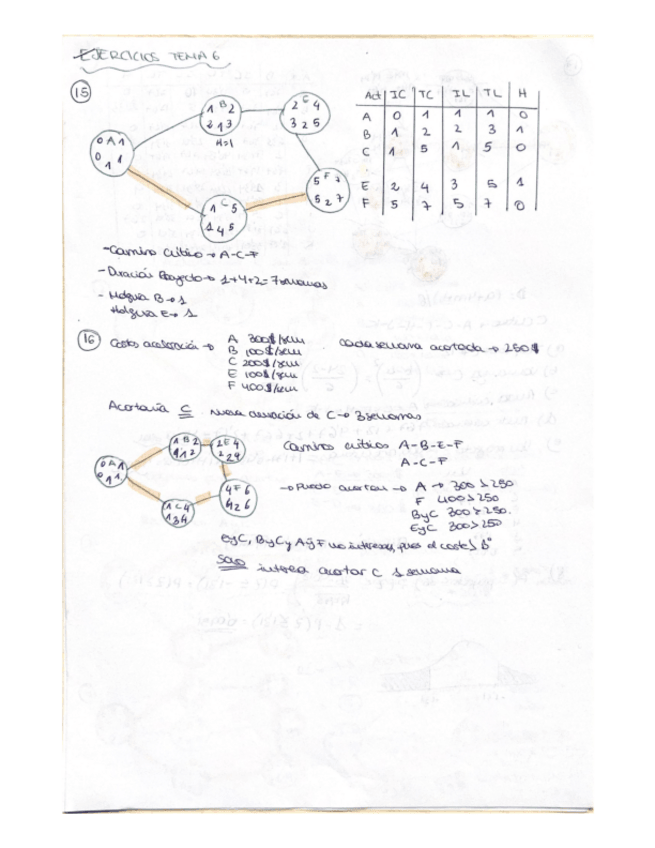 EJERCICIOS TEMA 6
15
Act IC TC IL TL H
A 0 1 1 1 0
B 1 2 2 3 1
C 1 5 1 5 0
E 2 4 3 5 1
F 5 7 5 7 0
0 A 1
0 1 1
1 B 2
2 1 3
H=1
2 E 4
3 2 5
1 C 5
1 4 5
5 F 7
5 2 7
- Camino crítico → A-C-F
- Duración Proyecto → 1+4+2=7 semanas
- Holgura B → 1
Holgura E → 1
16
Costo aceleración → A 300$/sem
B 100$/sem
C 200$/sem
E 100$/sem
F 400$/sem
cada semana acortada → 250$
Acortaría C nueva duración de C → 3 semanas
0 A 1
0 1 1
1 B 2
1 1 2
2 E 4
2 2 4
1 C 4
1 3 4
4 F 6
4 2 6
Camino críticos A-B-E-F
A-C-F
→ Puedo acortar → A → 300 > 250
F 400 > 250
B y C 300 > 250.
E y C 300 > 250
E y C, B y C y A y F no interesa, pues el coste > Bº
Solo interesa acortar C 1 semana